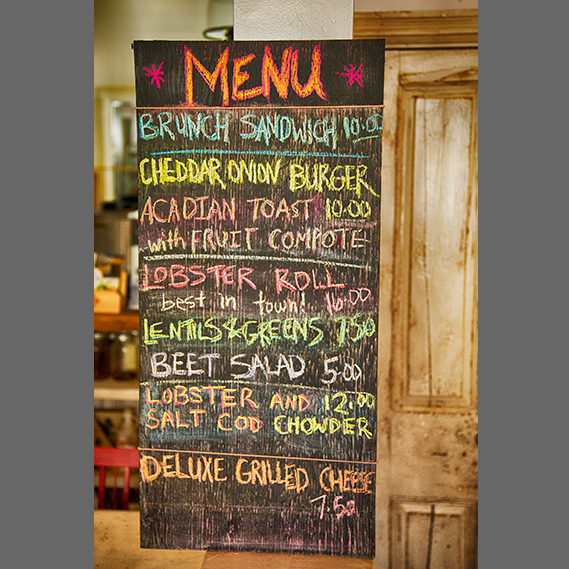 MENU
BRUNCH SANDWICH 10.00
CHEDDAR, ONION BURGER
ACADIAN TOAST 10.00
with FRUIT COMPOTE
LOBSTER ROLL
best in town! 16.00
LENTILS & GREENS 7.50
BEET SALAD 5.00
LOBSTER AND 12.00
SALT COD CHOWDER
DELUXE GRILLED CHEESE
7.50